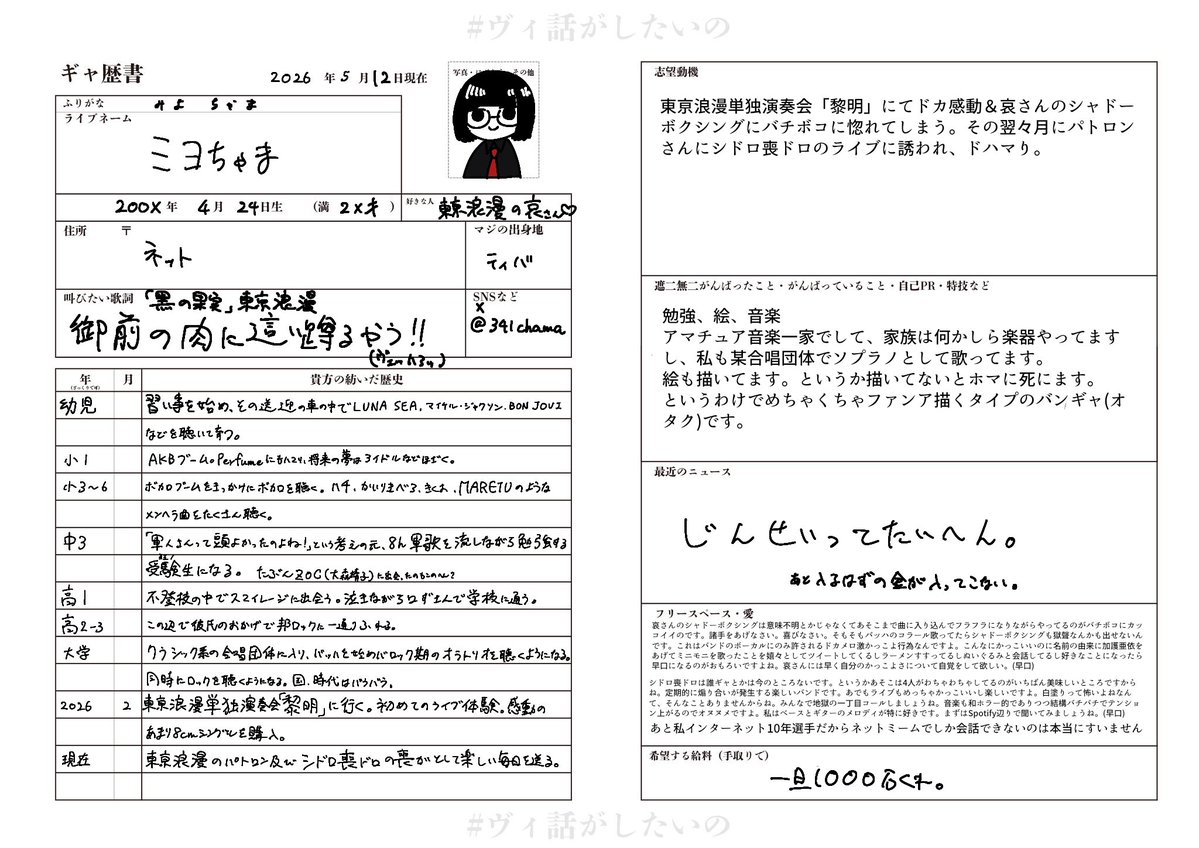 #ヴィ話がしたいの
ギャ歴書
2026 年 5 月 12 日現在
写真・ その他
ふりがな みよ ちゃま
ライブネーム
ミヨちゃま
200X 年 4 月 24 日生 (満 2X才 )
好きな人 東京浪漫の哀さん♡
住所 〒
ネット
マジの出身地
ティバ
叫びたい歌詞 「黒の果実」東京浪漫
御前の肉に這い蹲るやう!!
SNSなど
X
@341chama
年 月 貴方の紡いだ歴史
(ざっくりです)
幼児 習い事を始め、その送迎の車の中でLUNA SEA、マイケル・ジャクソン、BON JOVI
などを聴いて育つ。
小1 AKBブーム。Perfumeにもハマり、将来の夢はアイドルなどほざく。
小3~6 ボカロブームをきっかけにボカロを聴く。ハチ、かいりきベア、きくお、MARETUのような
メンヘラ曲をたくさん聴く。
中3 「軍人さんって頭よかったのよね!」という考えの元、8h軍歌を流しながら勉強する
受験生になる。 たぶんZOC(大森靖子)に出会ったのもこのへん?
高1 不登校の中でスマイレージに出会う。泣きながら口ずさんで学校に通う。
高2-3 この辺で彼氏のおかげで邦ロックに一通りふれる。
大学 クラシック系の合唱団体に入り、バッハを始めバロック期のオラトリオを聴くようになる。
同時にロックを聴くようになる。国、時代はバラバラ。
2026 2 東京浪漫単独演奏会「黎明」に行く。初めてのライブ体験。感動の
あまり8cmシングルを購入。
現在 東京浪漫のパトロン及びシドロ喪ドロの喪がとして楽しい毎日を送る。
志望動機
東京浪漫単独演奏会「黎明」にてドカ感動&哀さんのシャドー
ボクシングにバチボコに惚れてしまう。その翌々月にパトロン
さんにシドロ喪ドロのライブに誘われ、ドハマり。
遮二無二がんばったこと・がんばっていること・自己PR・特技など
勉強、絵、音楽
アマチュア音楽一家でして、家族は何かしら楽器やってます
し、私も某合唱団体でソプラノとして歌ってます。
絵も描いてます。というか描いてないとホマに死にます。
というわけでめちゃくちゃファンア描くタイプのバンギャ(オ
タク)です。
最近のニュース
じんせいってたいへん。
あと入るはずの金が入ってこない。
フリースペース・愛
哀さんのシャドーボクシングは意味不明とかじゃなくてあそこまで曲に入り込んでフラフラになりながらやってるのがバチボコにカッ
コイイのです。諸手をあげなさい。喜びなさい。そもそもバッハのコラール歌ってたらシャドーボクシングも獄聲なんかも出せないん
です。これはバンドのボーカルにのみ許されるドカメロ激かっこよ行為なんですよ。こんなにかっこいいのに名前の由来に加護亜依を
あげてミニモニを歌ったことを嬉々としてツイートしてくるしラーメンすすってるしぬいぐるみと会話してるし好きなことになったら
早口になるのがおもろいですよね。哀さんには早く自分のかっこよさについて自覚をして欲しい。(早口)
シドロ喪ドロは誰ギャとかは今のところないです。というかあそこは4人がわちゃわちゃしてるのがいちばん美味しいところですから
ね。定期的に煽り合いが発生する楽しいバンドです。あでもライブもめっちゃかっこいいし楽しいですよ。白塗りって怖いよねなん
て、そんなことありませんからね。みんなで地獄の一丁目コールしましょうね。音楽も和ホラー的でありつつ結構バチバチでテンショ
ン上がるのでオススメですよ。私はベースとギターのメロディが特に好きです。まずはSpotify辺りで聞いてみましょうね。(早口)
あと私インターネット10年選手だからネットミームでしか会話できないのは本当にすいません
希望する給料(手取りで)
一旦1000億くれ。
#ヴィ話がしたいの